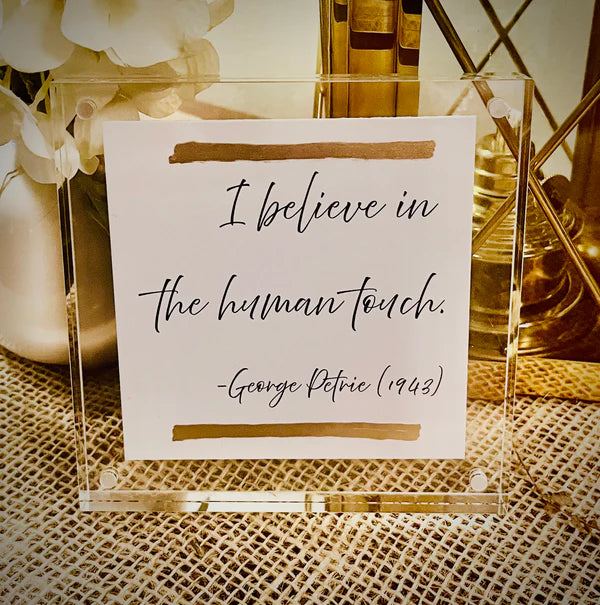 I believe in
the human touch.
-George Petrie (1943)